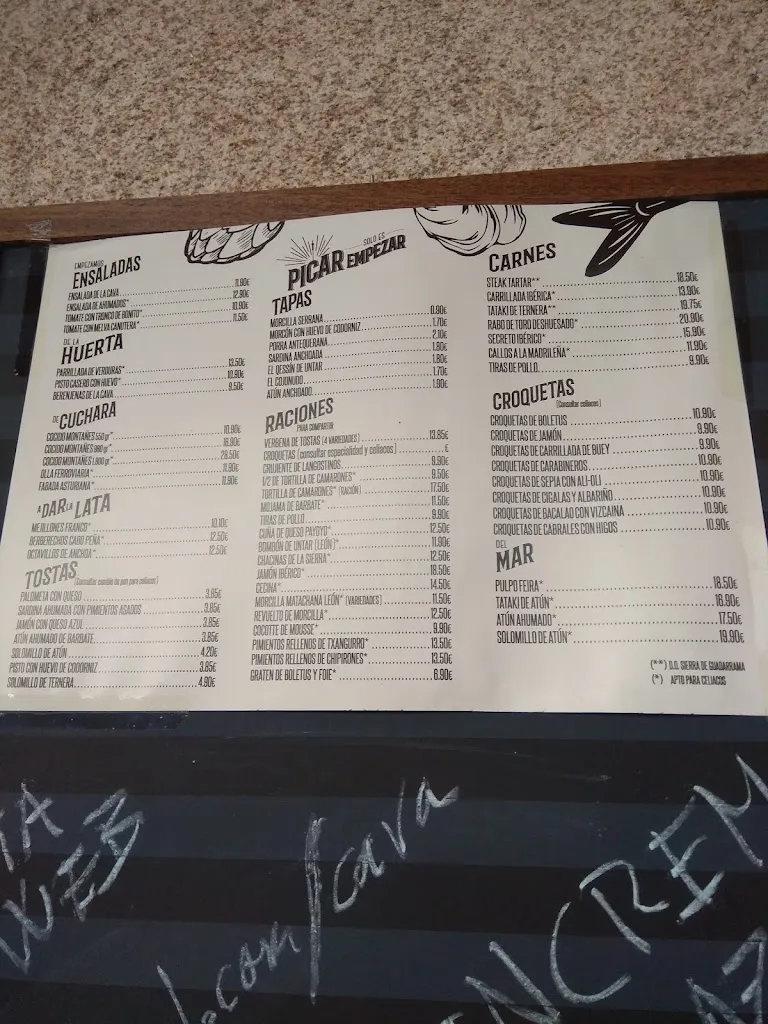 EMPEZAMOS
ENSALADAS
ENSALADA DE LA CAVA 11.90€
ENSALADA DE AHUMADOS* 12.90€
TOMATE CON TRONCO DE BONITO* 10.90€
TOMATE CON MELVA CANUTERA* 11.50€
DE LA
HUERTA
PARRILLADA DE VERDURAS* 13.50€
PISTO CASERO CON HUEVO* 10.90€
BERENJENAS DE LA CAVA 9.50€
DE CUCHARA
COCIDO MONTAÑES 550 gr* 10.90€
COCIDO MONTAÑES 980 gr* 18.90€
COCIDO MONTAÑES 1.800 gr* 28.50€
OLLA FERROVIARIA* 11.90€
FABADA ASTURIANA* 11.90€
A DAR LA LATA
MEJILLONES FRANCO* 10.10€
BERBERECHOS CABO PEÑA* 12.50€
OCTAVILLOS DE ANCHOA* 12.50€
TOSTAS
(Consultar cambio de pan para celiacos)
PALOMETA CON QUESO 3.85€
SARDINA AHUMADA CON PIMIENTOS ASADOS 3.85€
JAMÓN CON QUESO AZUL 3.85€
ATÚN AHUMADO DE BARBATE 3.85€
SOLOMILLO DE ATÚN 4.20€
PISTO CON HUEVO DE CODORNIZ 3.85€
SOLOMILLO DE TERNERA 4.90€
SOLO ES
PICAR EMPEZAR
TAPAS
MORCILLA SERRANA 0.90€
MORCÓN CON HUEVO DE CODORNIZ 1.70€
PORRA ANTEQUERANA 2.10€
SARDINA ANCHOADA 1.80€
EL QESSÍN DE UNTAR 1.80€
EL COJONUDO 1.70€
ATÚN ANCHOADO 1.90€
RACIONES
PARA COMPARTIR
VERBENA DE TOSTAS (4 VARIEDADES) 13.85€
CROQUETAS (consultar especialidad y celiacos) €
CRUJIENTE DE LANGOSTINOS 9.90€
1/2 DE TORTILLA DE CAMARONES* 9.50€
TORTILLA DE CAMARONES* (RACIÓN) 17.50€
MOJAMA DE BARBATE* 11.50€
TIRAS DE POLLO 9.90€
CUÑA DE QUESO PAYOYO* 12.50€
BOMBÓN DE UNTAR (LEÓN)* 11.90€
CHACINAS DE LA SIERRA* 12.50€
JAMÓN IBÉRICO* 18.50€
CECINA* 14.50€
MORCILLA MATACHANA LEÓN* (VARIEDADES) 11.50€
REVUELTO DE MORCILLA* 12.50€
COCOTTE DE MOUSSE* 9.90€
PIMIENTOS RELLENOS DE TXANGURRO* 13.50€
PIMIENTOS RELLENOS DE CHIPIRONES* 13.50€
GRATEN DE BOLETUS Y FOIE* 6.90€
CARNES
STEAK TARTAR** 18.50€
CARRILLADA IBÉRICA* 13.90€
TATAKI DE TERNERA** 19.75€
RABO DE TORO DESHUESADO* 20.90€
SECRETO IBÉRICO* 15.90€
CALLOS A LA MADRILEÑA* 11.90€
TIRAS DE POLLO 9.90€
CROQUETAS
(Consultar celiacos)
CROQUETAS DE BOLETUS 10.90€
CROQUETAS DE JAMÓN 9.90€
CROQUETAS DE CARRILLADA DE BUEY 9.90€
CROQUETAS DE CARABINEROS 10.90€
CROQUETAS DE SEPIA CON ALI-OLI 10.90€
CROQUETAS DE CIGALAS Y ALBARIÑO 10.90€
CROQUETAS DE BACALAO CON VIZCAINA 10.90€
CROQUETAS DE CABRALES CON HIGOS 10.90€
DEL
MAR
PULPO FEIRA* 18.50€
TATAKI DE ATÚN* 18.90€
ATÚN AHUMADO* 17.50€
SOLOMILLO DE ATÚN* 19.90€
(**) D.O. SIERRA DE GUADARRAMA
(*) APTO PARA CELIACOS
TA
WEB
.com/cava
NCREM